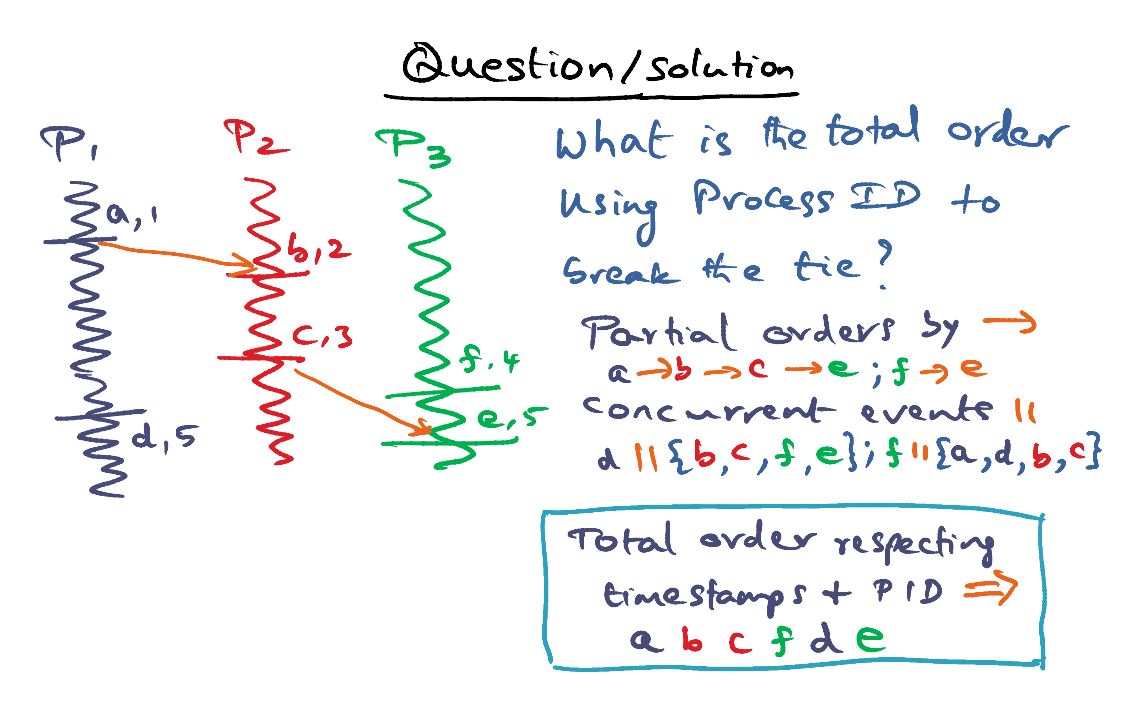 Question/solution
P1 P2 P3
a,1
b,2
c,3
f,4
d,5
e,5
What is the total order
using Process ID to
break the tie?
Partial orders by →
a → b → c → e ; f → e
concurrent events ||
d || {b, c, f, e}; f || {a, d, b, c}
Total order respecting
timestamps + PID ⇒
a b c f d e